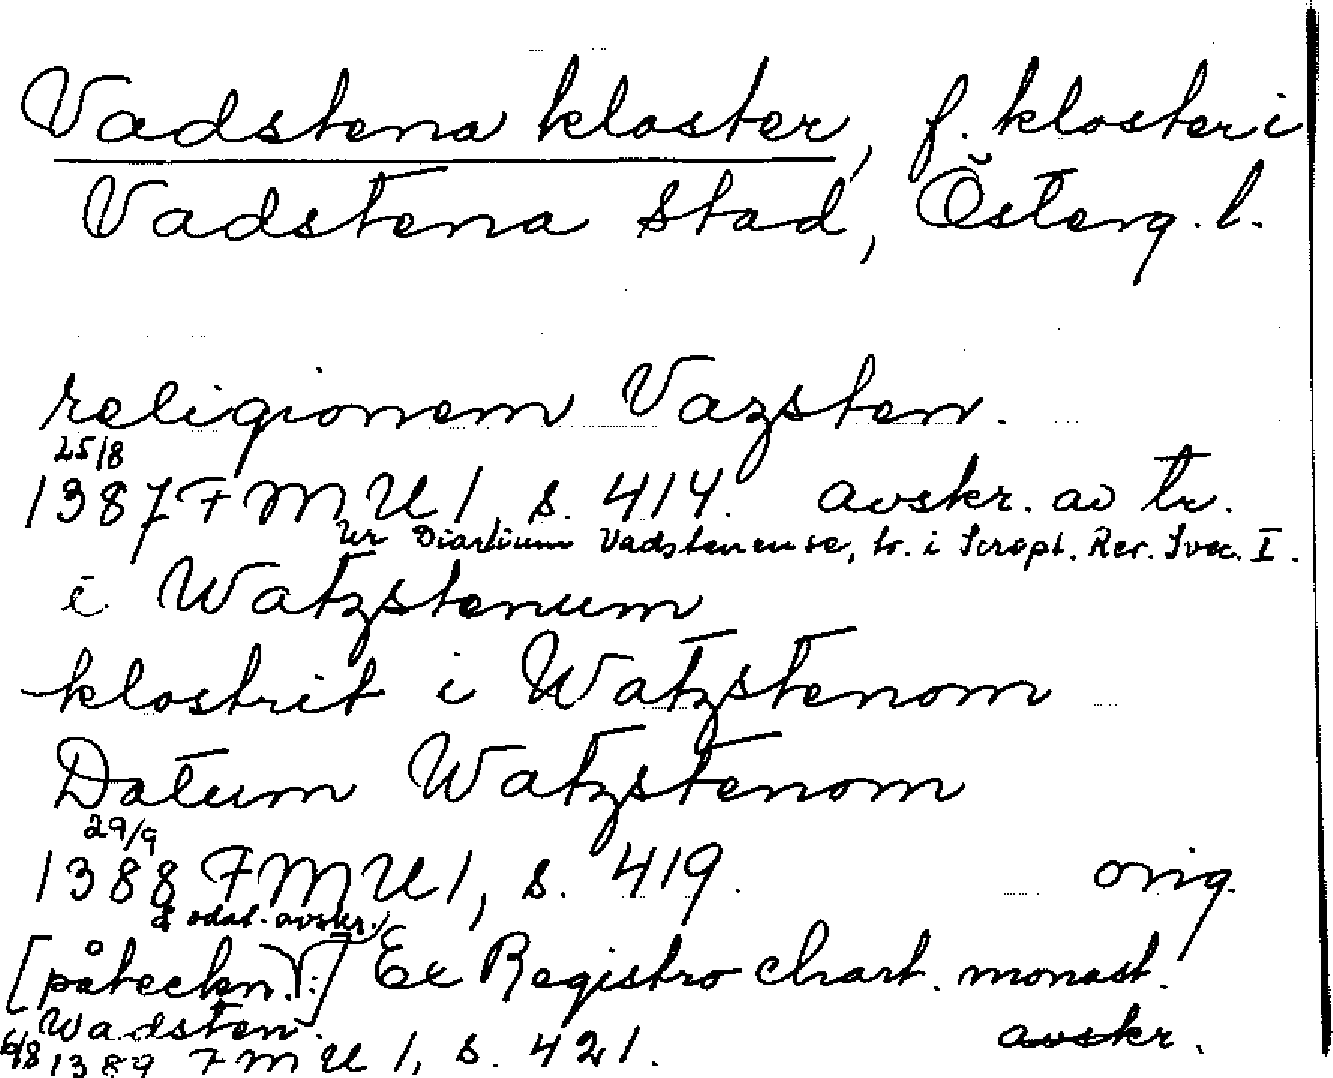 Vadstena kloster, f. kloster i
Vadstena stad, Österg. l.
religionem Vazsten.
25/8
1387 FMU 1, s. 414. avskr. av tr.
ur Diarium Vadstenense, tr. i Script. Rer. Svec. I.
i Watzstenum
klostrit i Watzstenom
Datum Watzstenom
29/9
1388 FMU 1, s. 419. orig.
å odat. avskr.
[påteckn. :] Ex Registro chart. monast.
Wadsten.
6/8 1389 FMU 1, s. 421. avskr.